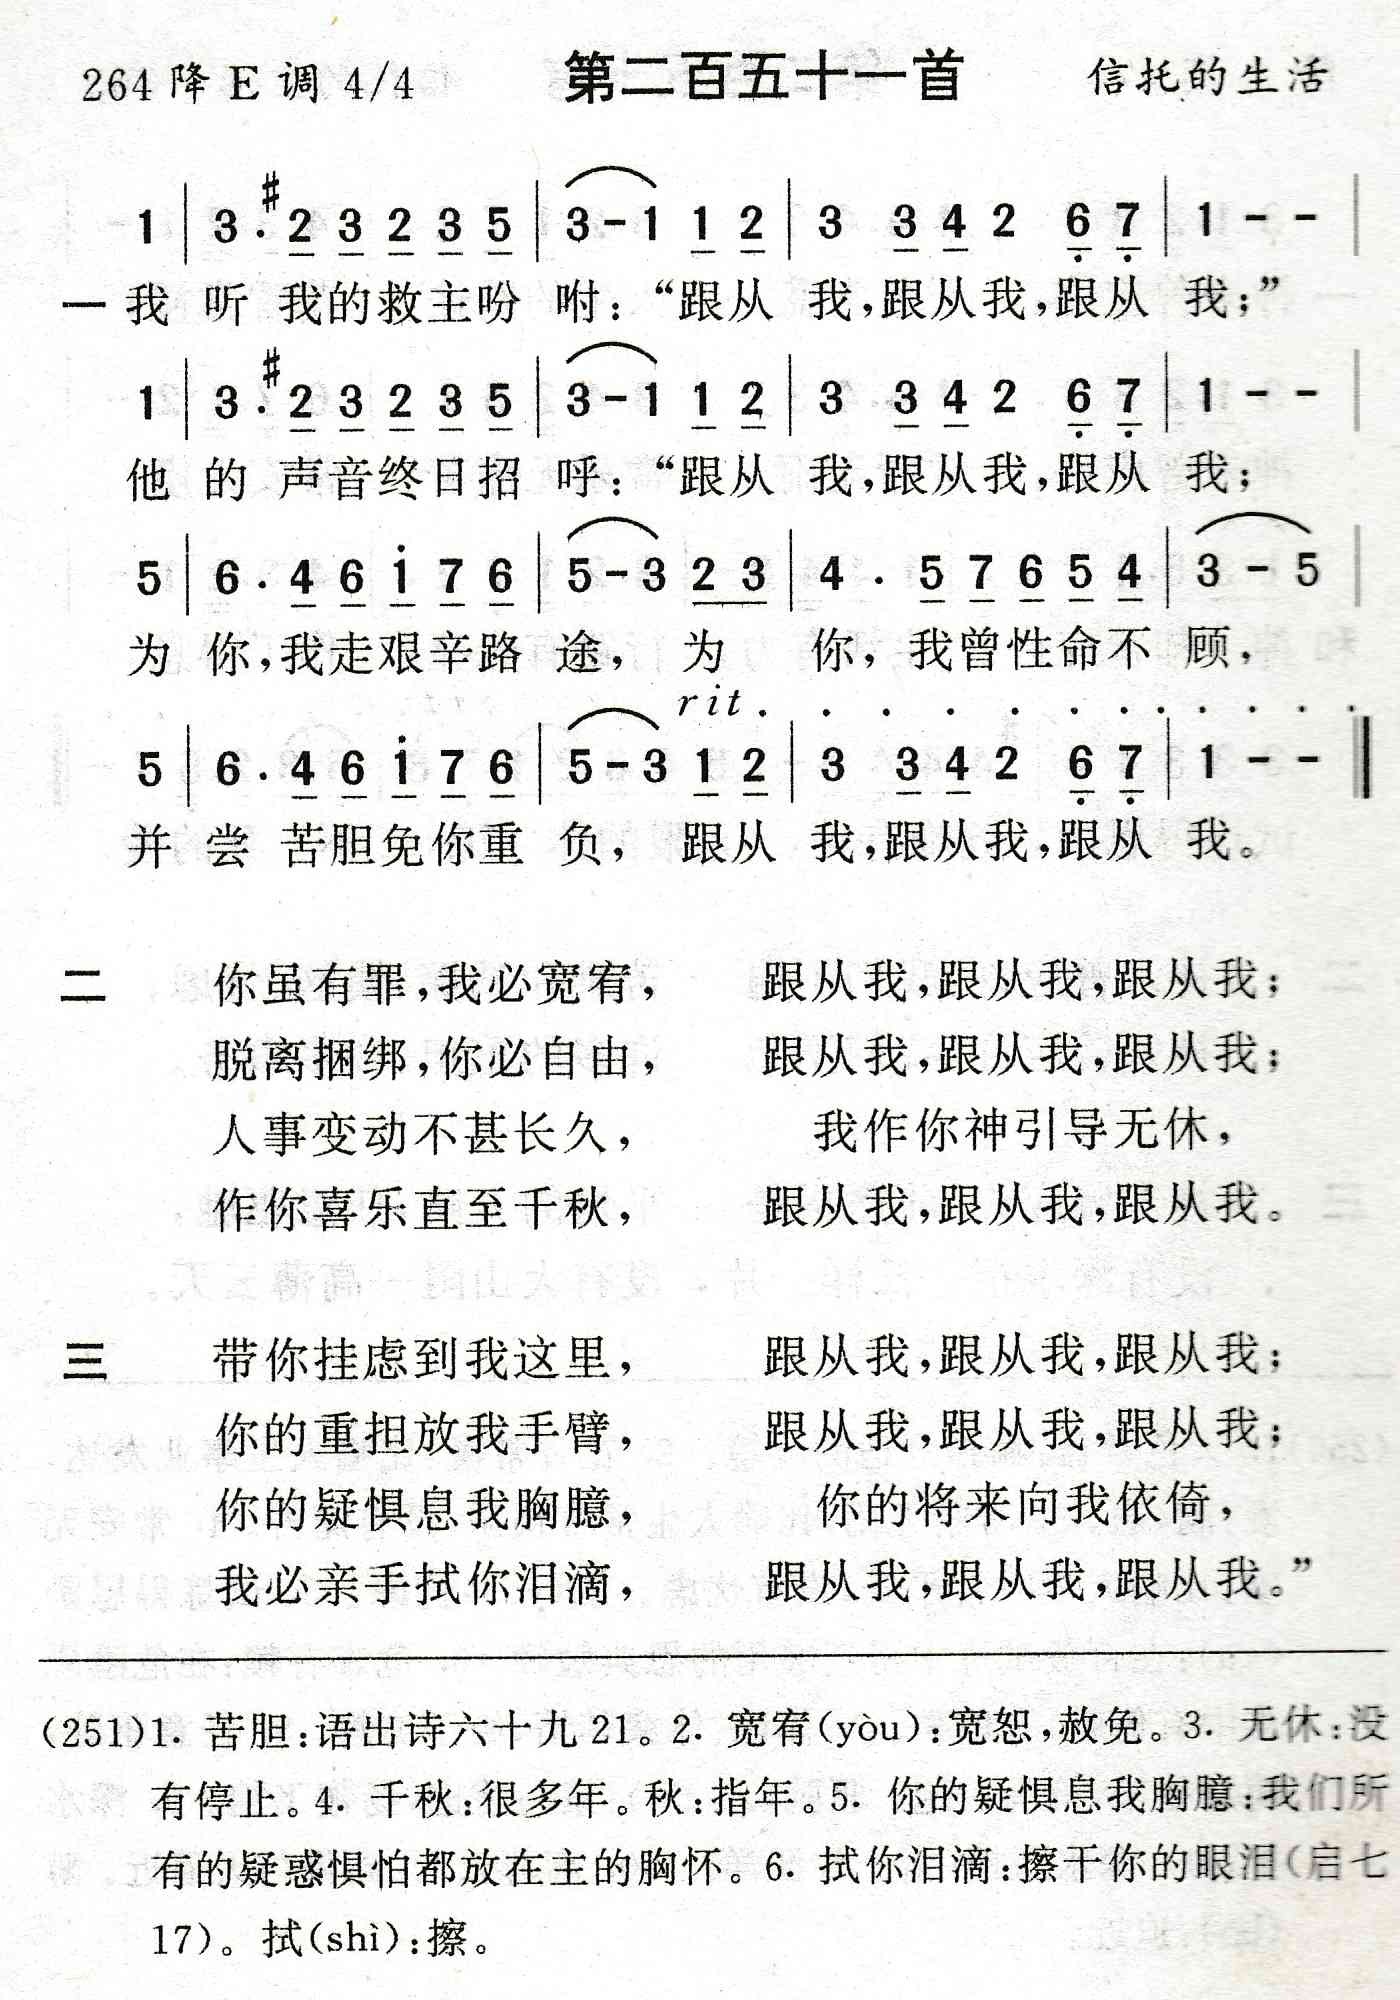 264 降 E 调 4/4 第二百五十一首 信托的生活
1 | 3 . #2 3 2 3 5 | 3 - 1 1 2 | 3 3 4 2 6 7 | 1 - - |
一 我 听 我的救主吩 咐：“跟从 我，跟从我，跟从 我；”
1 | 3 . #2 3 2 3 5 | 3 - 1 1 2 | 3 3 4 2 6 7 | 1 - - |
他 的 声音终日招 呼：“跟从 我，跟从我，跟从 我；
5 | 6 . 4 6 i 7 6 | 5 - 3 2 3 | 4 . 5 7 6 5 4 | 3 - 5 |
为 你，我走艰辛路 途， 为 你， 我曾性命不 顾，
rit. . . . . . . . . . . .
5 | 6 . 4 6 i 7 6 | 5 - 3 1 2 | 3 3 4 2 6 7 | 1 - - ‖
并 尝 苦胆免你重 负， 跟从 我，跟从我，跟从 我。
二 你虽有罪，我必宽宥， 跟从我，跟从我，跟从我；
脱离捆绑，你必自由， 跟从我，跟从我，跟从我；
人事变动不甚长久， 我作你神引导无休，
作你喜乐直至千秋， 跟从我，跟从我，跟从我。
三 带你挂虑到我这里， 跟从我，跟从我，跟从我；
你的重担放我手臂， 跟从我，跟从我，跟从我；
你的疑惧息我胸臆， 你的将来向我依倚，
我必亲手拭你泪滴， 跟从我，跟从我，跟从我。”
(251)1. 苦胆：语出诗六十九 21。2. 宽宥(yòu)：宽恕，赦免。3. 无休：没
有停止。4. 千秋：很多年。秋：指年。5. 你的疑惧息我胸臆：我们所
有的疑惑惧怕都放在主的胸怀。6. 拭你泪滴：擦干你的眼泪(启七
17)。拭(shì)：擦。